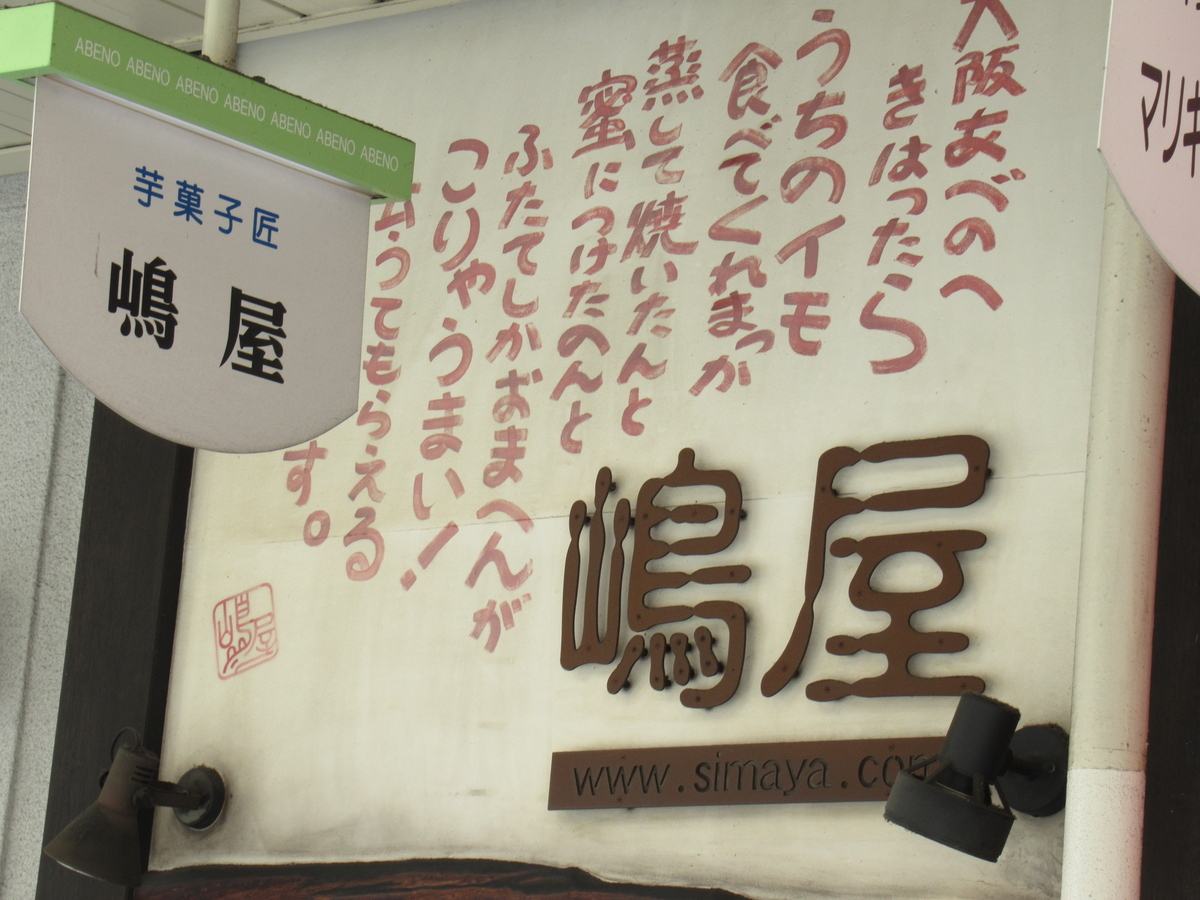 ABENO ABENO ABENO ABENO ABENO ABENO ABENO
芋菓子匠
嶋屋
大阪あべのへ
きはったら
うちのイモ
食べてくれまっか
蒸して焼いたんと
蜜につけたのんと
ふたてしかおまへんが
こりゃうまい!
云うてもらえる
す。
嶋屋
嶋屋
www.simaya.com
マリキ